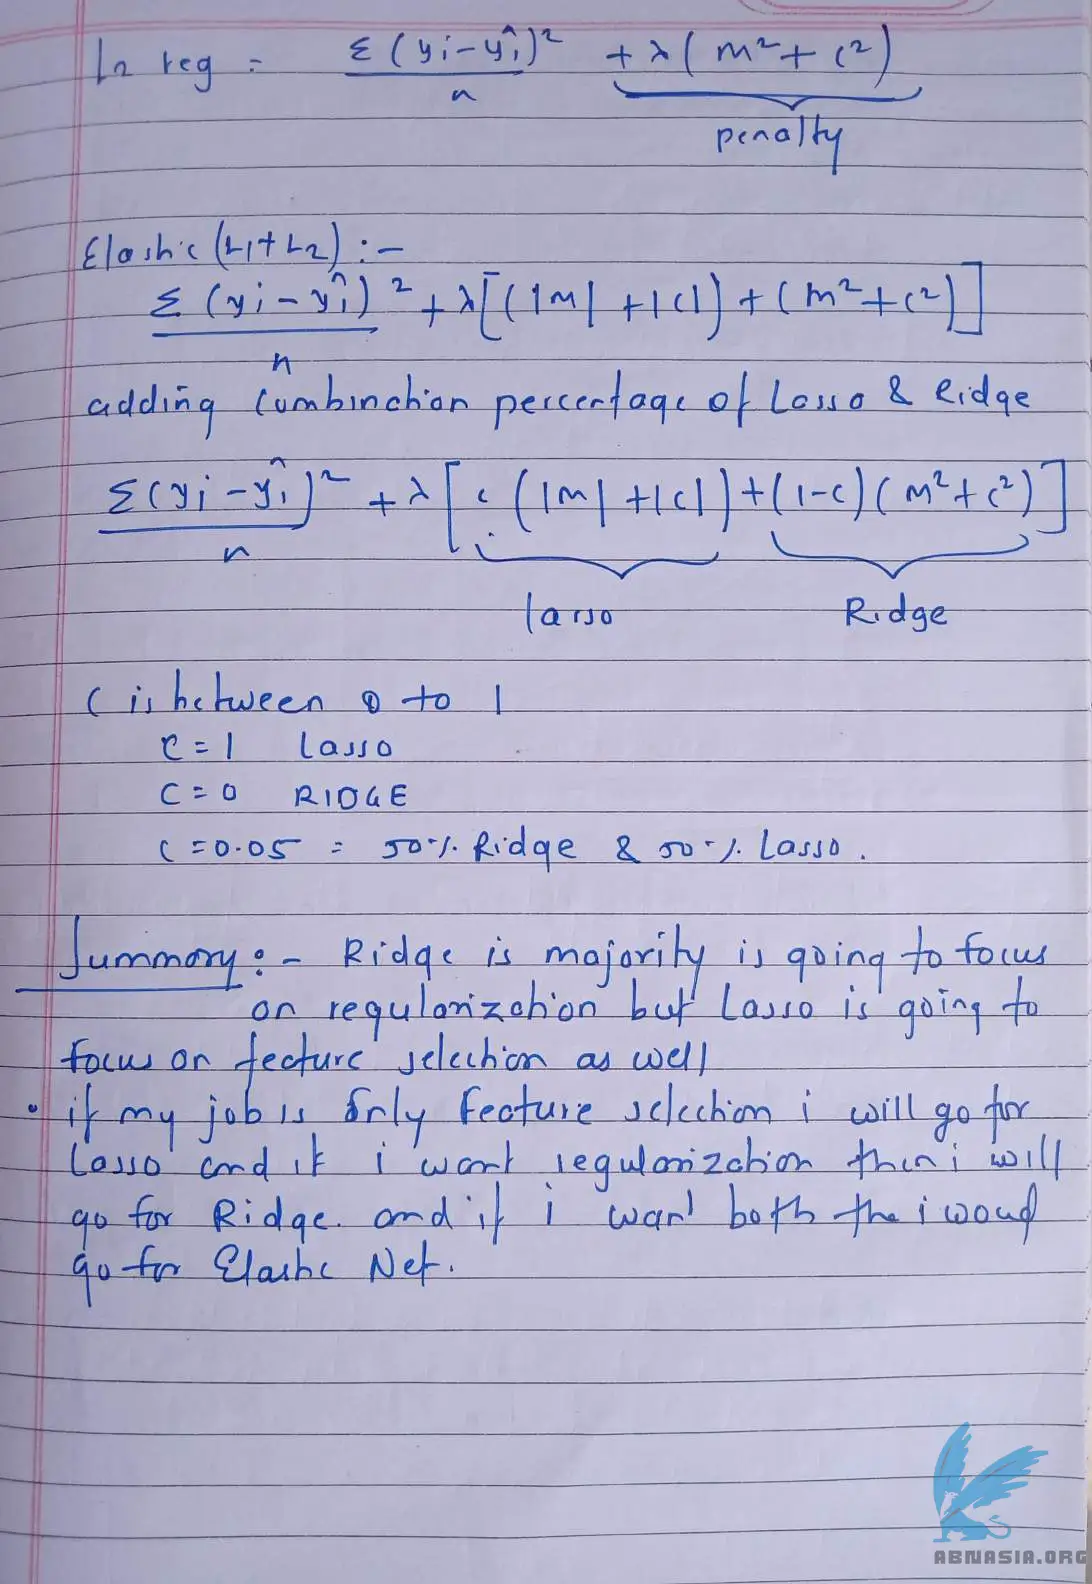 L2 reg = Σ(yi-ŷi)² / n + λ(m²+c²)
penalty
Elastic (L1+L2) :-
Σ(yi-ŷi)² / n + λ[(|m|+|c|)+(m²+c²)]
adding combination percentage of Lasso & Ridge
Σ(yi-ŷi)² / n + λ[c(|m|+|c|)+(1-c)(m²+c²)]
lasso Ridge
C is between 0 to 1
C=1 Lasso
C=0 RIDGE
C=0.05 = 50% Ridge & 50% Lasso.
Summary:- Ridge is majority is going to focus
on regularization but Lasso is going to
focus on feature selection as well
• if my job is only feature selection i will go for
Lasso and if i want regularization then i will
go for Ridge. and if i want both the i woud
go for Elastic Net.
ABNASIA.ORG